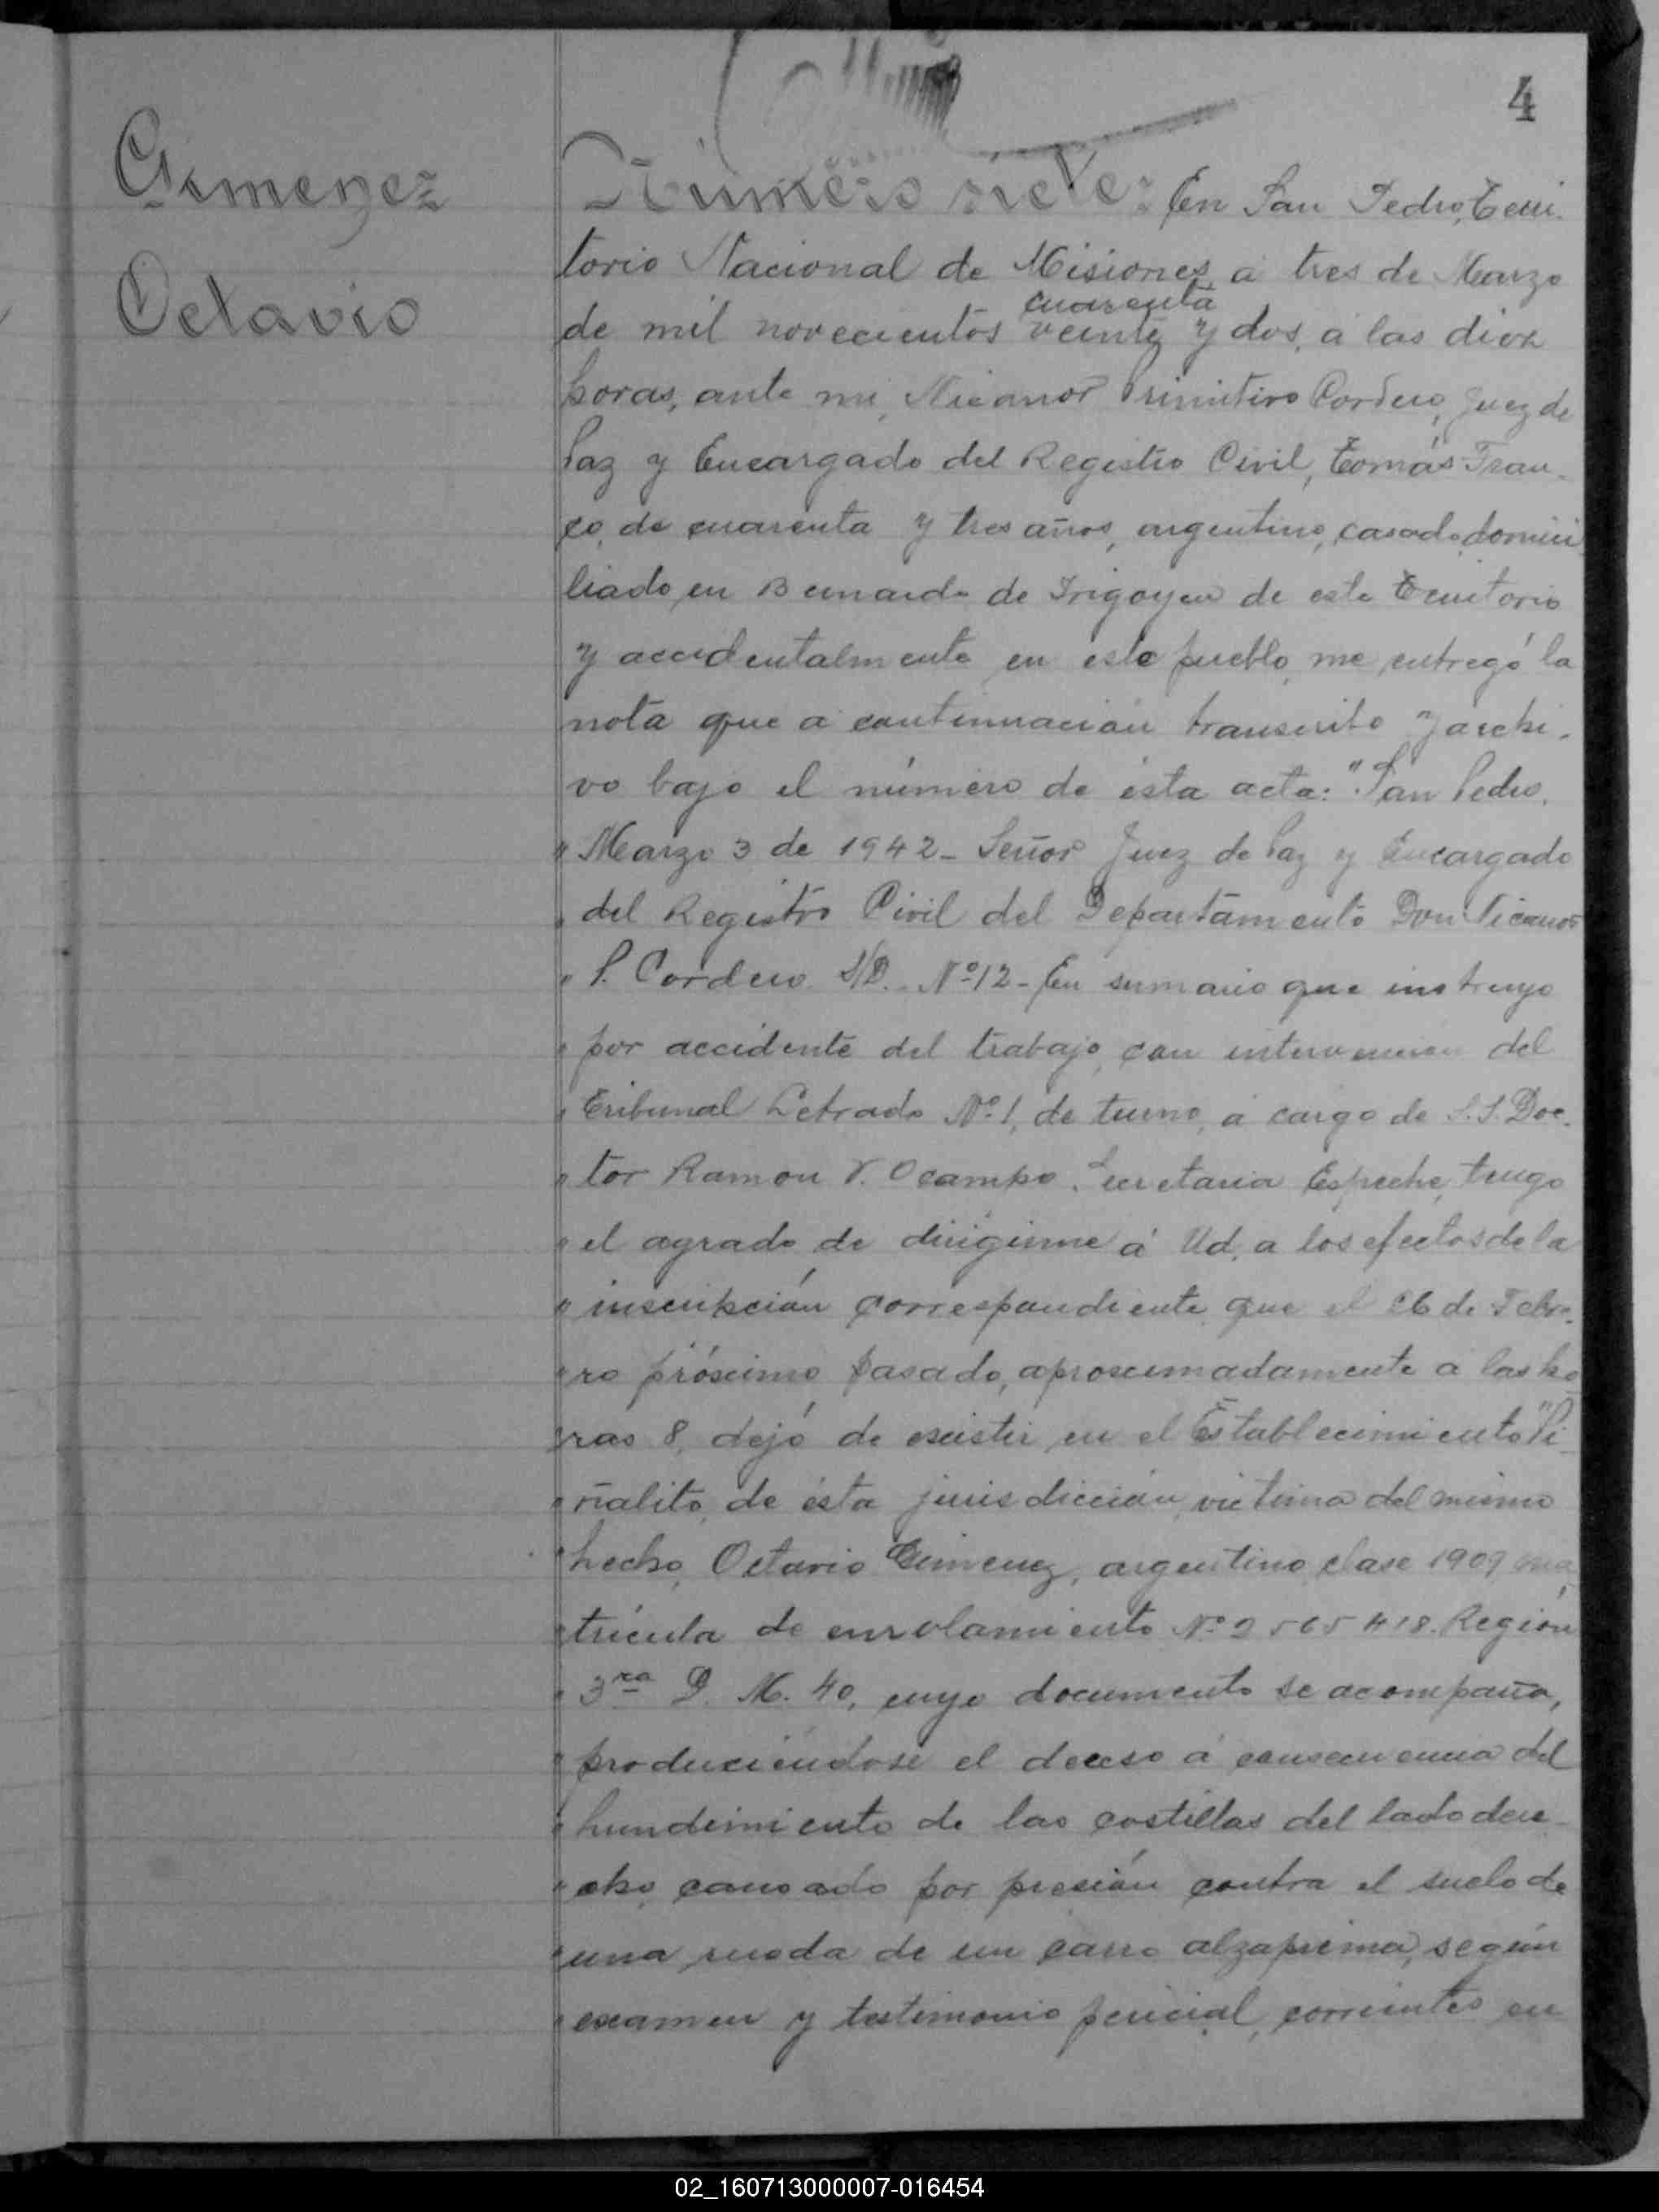 4
Gimenez
Octavio
Número siete: En San Pedro, Terri-
torio Nacional de Misiones, a tres de Marzo
cuarenta
de mil novecientos veinte y dos, a las diez
horas, ante mi, Nicanor Primitivo Cordero, Juez de
Paz y Encargado del Registro Civil, Tomás Fran-
co, de cuarenta y tres años, argentino, casado, domici
liado en Bernardo de Irigoyen de este Territorio
y accidentalmente en este pueblo, me entregó la
nota que a continuación transcribo y archi-
vo bajo el número de ésta acta: "San Pedro,
" Marzo 3 de 1942- Señor Juez de Paz y Encargado
" del Registro Civil del Departamento Don Nicanor
" P. Cordero S/D.- Nº 12- En sumario que instruyo
" por accidente del trabajo, con intervención del
" Tribunal Letrado Nº 1, de turno, a cargo de S.S. Doc-
" tor Ramon V. Ocampo, Secretaria Espeche, tengo
" el agrado de dirigirme á Ud. a los efectos de la
" inscripción correspondiente que el 26 de Febre-
" ro próximo pasado, aproximadamente a las ho
" ras 8, dejó de existir en el Establecimiento "Pi-
" ñalito, de ésta jurisdicción, victima del mismo
" hecho, Octavio Gimenez, argentino, clase 1909, ma
" trícula de enrolamiento Nº 2565418. Región
" 3ra D. M. 40, cuyo documento se acompaña,
" produciéndose el deceso á consecuencia del
" hundimiento de las costillas del lado dere-
" cho, causado por presión contra el suelo de
" una rueda de un carro alzaprima, según
" examen y testimonio pericial, corrientes en
02_160713000007-016454